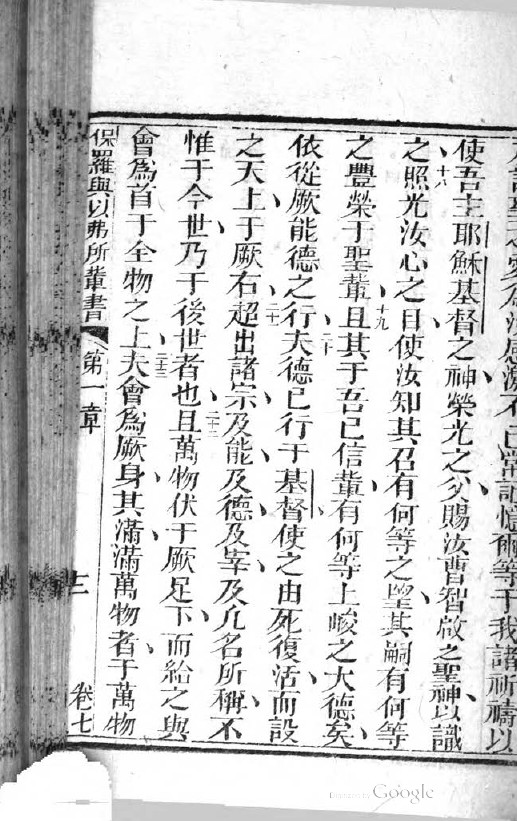 及諸聖之愛為汝感激不已常記憶爾等于我諸祈禱以
使吾主耶穌基督之神榮光之父賜汝曹智啟之聖神以識
十八
之照光汝心之目使汝知其召有何等之望其嗣有何等
十九
之豐榮于聖輩且其于吾已信輩有何等上峻之大德矣
依從厥能德之行夫德已行于基督使之由死復活而設
二十
之天上于厥右超出諸宗及能及德及宰及凡名所稱不
二十一
惟于今世乃于後世者也且萬物伏于厥足下而給之與
二十二
會為首于全物之上夫會為厥身其滿滿萬物者于萬物
二十三
保羅與以弗所輩書 第一章 三 卷七
Digitized by Google